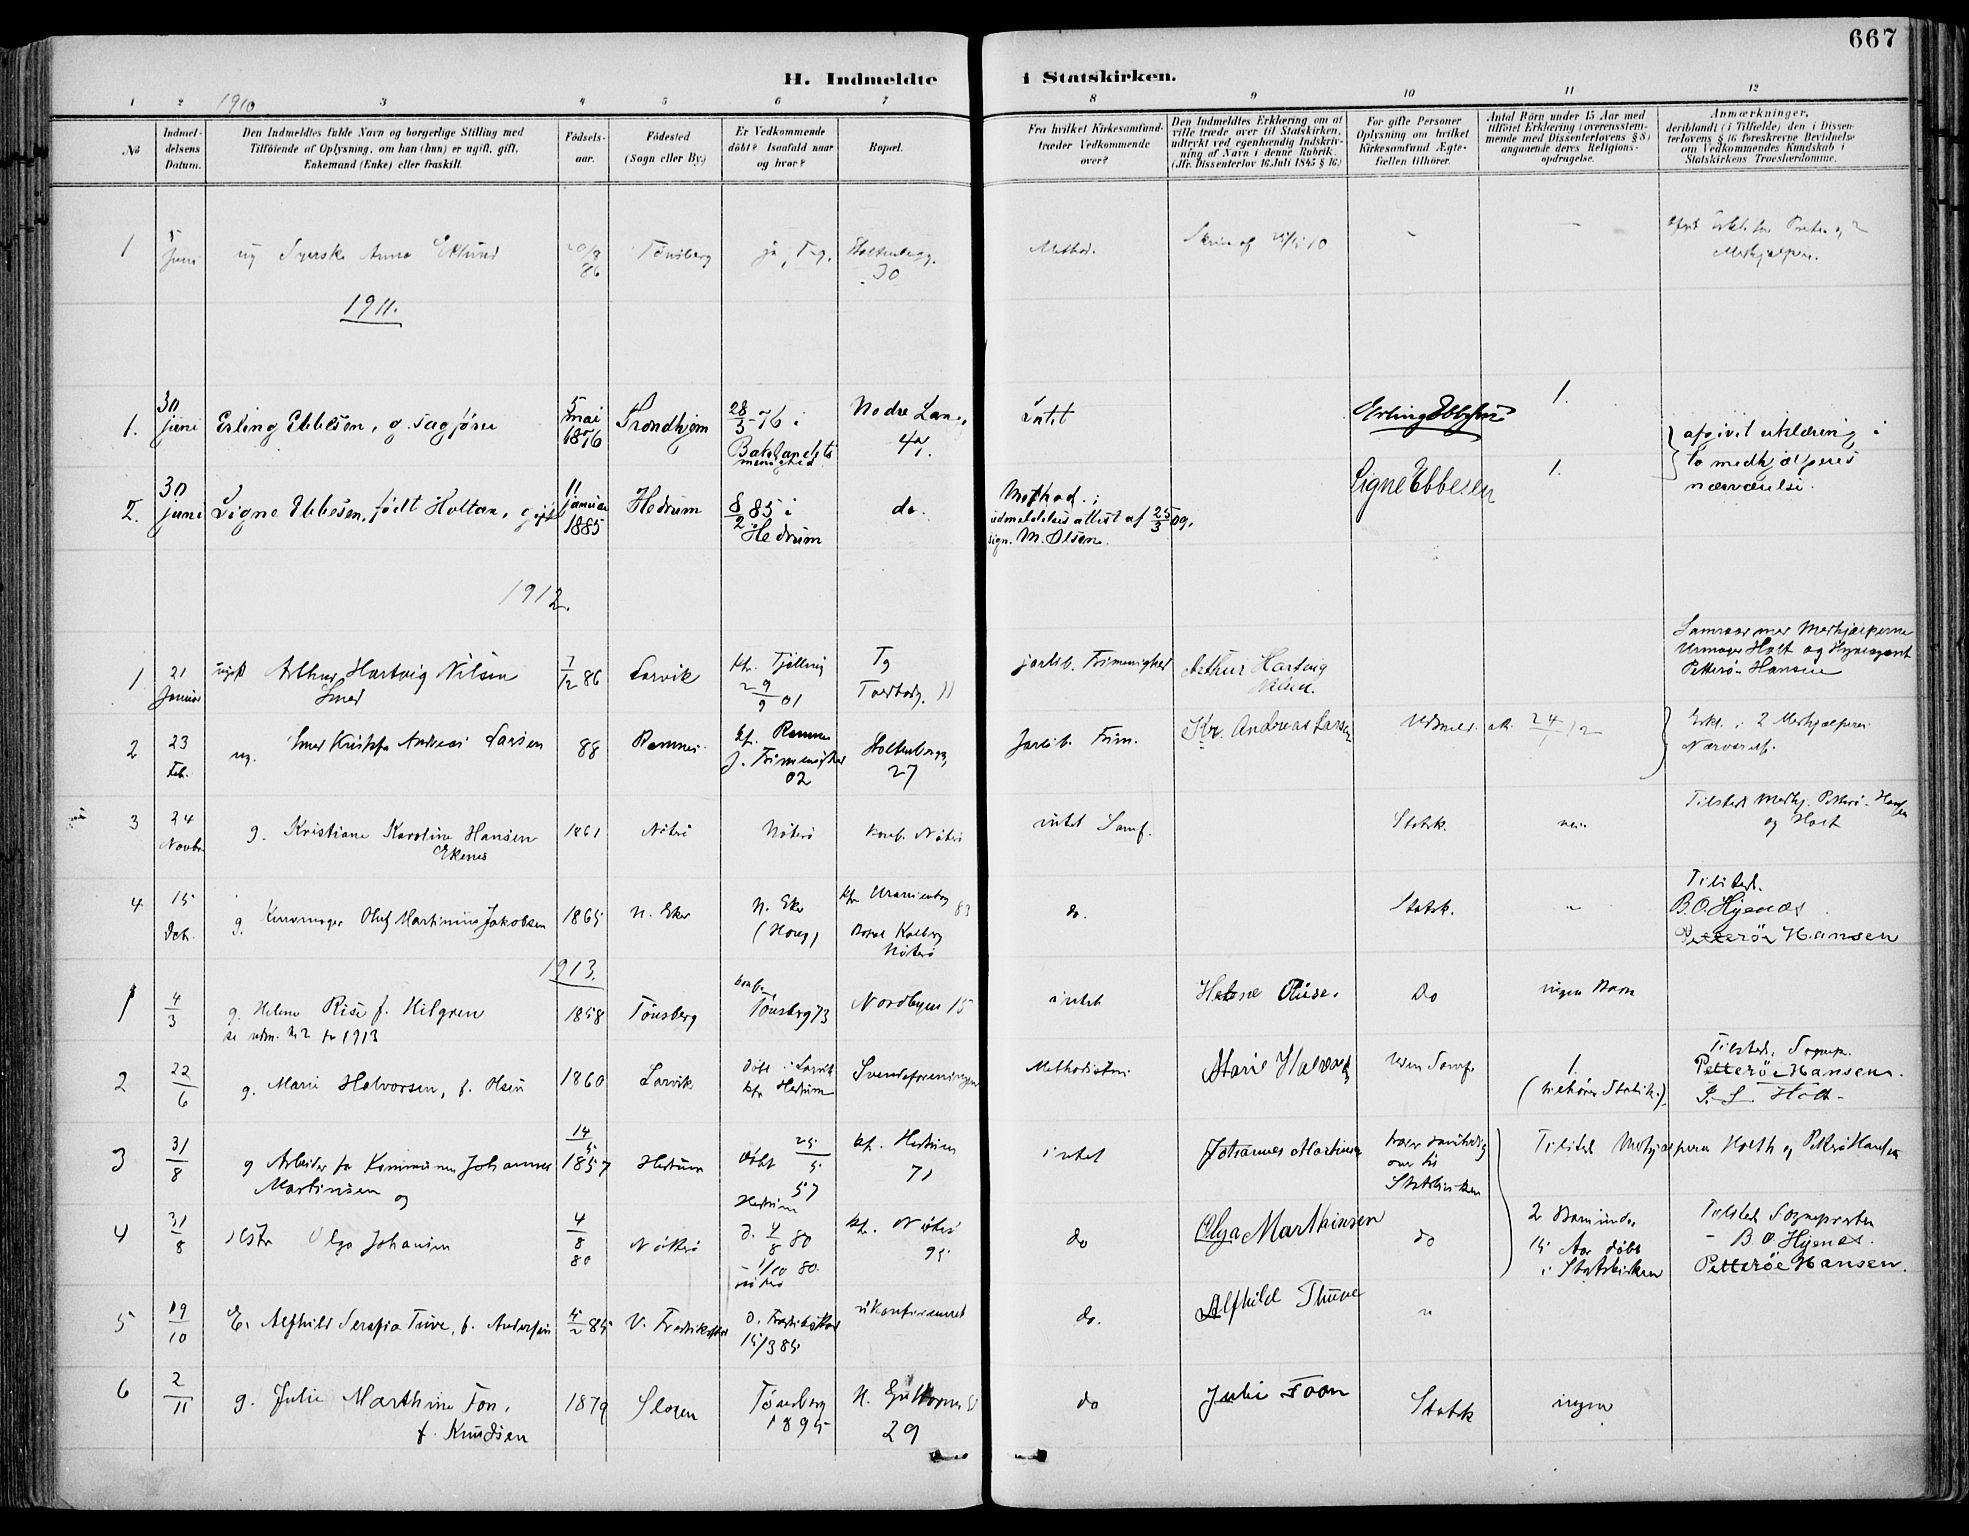 667
H. Indmeldte i Statskirken.
1 2 3 4 5 6 7 8 9 10 11 12
1910
No
Indmel-
delsens
Datum.
Den Indmeldtes fulde Navn og borgerlige Stilling med
Tilföiende af Oplysning, om han (hun) er ugift, gift,
Enkemand (Enke) eller fraskilt.
Födsels-
aar.
Födested
(Sogn eller By.)
Er Vedkommende
döbt? Isaafald naar
og hvor?
Bopæl.
Fra hvilket Kirkesamfund
træder Vedkommende
over?
Den Indmeldtes Erklæring om at
ville træde over til Statskirken,
udtrykt ved egenhændig Indskriv-
ning af Navn i denne Rubrik.
(Jfr. Dissenterlov 16 Juli 1845 § 16)
For gifte Personer
Oplysning om hvilket
Kirkesamfund Ægte-
fællen tilhörer.
Antal Börn under 15 Aar med
tilföiet Erklæring (overensstem-
mende med Dissenterlovens § 8)
angaaende deres Religions-
opdragelse.
Anmærkninger,
deriblandt (i Tilfælde) den i Dissen-
terlovens § 16 foreskrevne Bevidnelse
om Vedkommendes Kundskab i
Statskirkens Troeslærdomme.
1 5 Juni ug Syerske Anna Eklund 20/8 86 Tönsberg ja, Tbg. 30 Method.
1911.
1. 30 juni Erling Ebbesen, g. sagfører 5 mai 1876 Trondhjem 28/3 -76 i
Baklandets
menighed
Nedre Lan 
Intet Erling Ebbesen 1.
afgivit erklæring i
to medhjælperes
nærværelse.
2. 30 juni Signe Ebbesen, født Holtan, gift 11 januar 1885 Hedrum 8/2 85 i
Hedrum
do.
Method.;
udmeldelses attest af 25/3 09,
sign. M. Olsen.
Signe Ebbesen 1.
1912.
1 21 Januar ugift Arthur Hartvig Nilsen
Smed
7/12 86 Larvik kf. Tjölling
29/9 01
Tg
Toldbodg. 11
jarlsb. Frimenighed Arthur Hartvig
Nilsen.
Samraar med Medhjælperne
Urmager Holt og
Petterö-Hansen
2 23 Feb. ug. Smed Kristoffer Andreas Larsen 88 Ramnes kf. Ramnes
j. Frimenighed
02
Holtenbergg.
27
Jarlsb. Frim. Kr. Andreas Larsen Udmeld. att. 24/1 12
Erkl. i 2 Medhjælperes
Nærværelse.
3 24 Novbr. g. Kristiane Karoline Hansen
Ekenes
1861 Nöterö Nöterö konf. Nöterö intet Samf. Statsk. nei
Tilstede Medhj. Petterö-Hansen
og Holt
4 15 Dcb. g. Oluf Martinius Jakobsen 1865 N. Eker N. Eker
kfr Uranienborg 83
Bopæl Kolberg
Nöterö
do. Statsk. "
Tilstede.
B.O. Hyenæs
Petterøe Hansen
1913.
1 4/3 g. Helene Rise f. Hilgren
se udm. No 2 for 1913
1858 Tönsberg konf.
Tönsberg 73
Nordbyen 15 intet Helene Riise. Do ingen Barn
2 22/6 g. Marie Halvorsen, f. Olsen 1860 Larvik döbt i Larvik
kfr Hedrum
Svendsforeningen Methodisten Marie Halvorsen uden Samf. 1.
(tilhører Statsk.).
Tilstede, Sognep.
Petterøe Hansen.
Holt
3 31/8 g Arbeider for Kommunen Johannes
Martinsen og
14/5 1857 Hedrum döbt 25/5 57
Hedrum
kf. Hedrum
71
intet Johannes Martinsen
over til
Statskirken
Tilstede Medhjælperne Holth og Petterö Hansen
4 31/8 Hstr Olga Johansen 4/8 80 Nöterö d. 4/8 80
- 1/10 80
Nöterö
kf. Nöterö
95
do Olga Marthinsen do 2 Barn under
15 Aar döbt
i Statskirken
Tilstede Sognepresten
- B.O. Hyenæs.
Petterøe Hansen.
5 19/10 E. Alfhild Serafia Tuve, f. Andersen 4/2 85 V. Fredrikstad d. Fredrikstad
15/3 85
ukonfirmeret do. Alfhild Thuve "
6 2/11 g. Julie Marthine Fon,
f. Knudsen
1879 Slagen Tönsberg
1895
29
do Julie Foon Statsk ingen